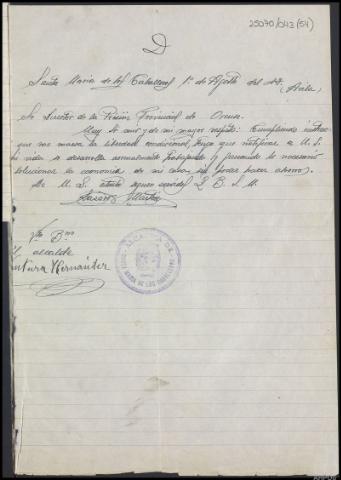 25070/043 (54)
D
Santa Maria de los Caballeros 1º de Agosto del 47
(Avila)
Sr Director de la Prisión Provincial de Orense.
Muy Sr mio y de mi mayor respeto: Cumpliendo
que me marca la libertad condicional, tengo que notificar a U. S.
mi vida se desarrolla normalmente trabajando y ganando lo necesario
solucionar la economia de mi casa sin poder hacer ahorros.
De U. S. atento seguro servidor Q. B. S. M.
Martin
Vto Bno
El alcalde
Ventura Hernández
ALCALDIA DE
SANTA MARIA DE LOS CABALLEROS